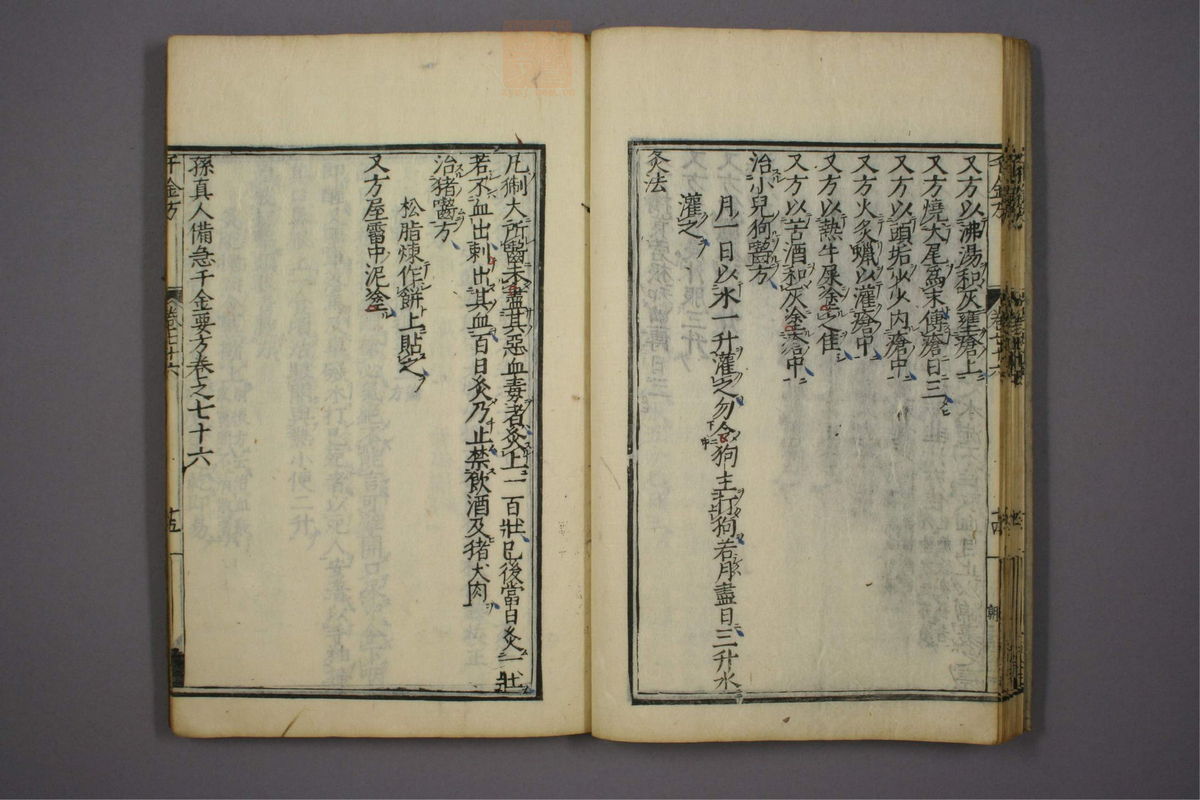 又方以沸湯和灰壅瘡上
又方燒犬尾為末傅瘡日三
又方以頭垢少少内瘡中
又方火炙蠟以灌瘡中
又方以熱牛屎塗之佳
又方以苦酒和灰塗瘡中
治小兒狗齧方
月一日以水一升灌之勿令狗主打狗若月盡日三升水
灌之
灸法
千金方
卷七十六
十四
凡猘犬所齧未盡其惡血毒者灸上一百壯已後當日灸一壯
若不血出刺出其血百日灸乃止禁飲酒及猪犬肉
治猪齧方
松脂煉作餅上貼之
又方屋霤中泥塗
孫真人備急千金要方卷之七十六
千金方
卷七十六
十五